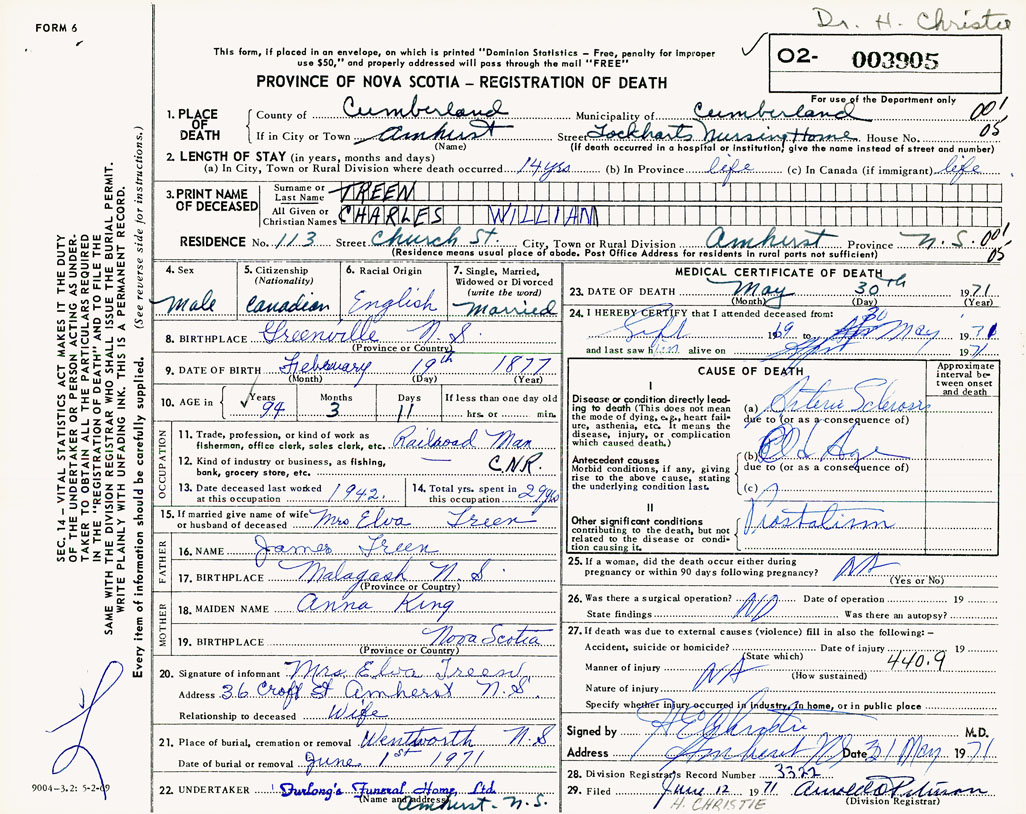 Dr. H. Christie
FORM 6
This form, if placed in an envelope, on which is printed "Dominion Statistics – Free, penalty for improper
use $50," and properly addressed will pass through the mail "FREE"
02- 003905
PROVINCE OF NOVA SCOTIA – REGISTRATION OF DEATH
For use of the Department only
1. PLACE OF DEATH
County of Cumberland Municipality of Cumberland 001
If in City or Town Amhurst Street Lockharts Nursing Home House No. 05
(Name) (If death occurred in a hospital or institution, give the name instead of street and number)
2. LENGTH OF STAY (in years, months and days)
(a) In City, Town or Rural Division where death occurred 14 yrs (b) In Province life (c) In Canada (if immigrant) life
3. PRINT NAME OF DECEASED
Surname or Last Name TREEN
All Given or Christian Names CHARLES WILLIAM
RESIDENCE No. 113 Street Church St. City, Town or Rural Division Amhurst Province N.S. 001
(Residence means usual place of abode. Post Office Address for residents in rural parts not sufficient) 05
4. Sex
Male
5. Citizenship (Nationality)
Canadian
6. Racial Origin
English
7. Single, Married, Widowed or Divorced (write the word)
Married
8. BIRTHPLACE Greenville N.S.
(Province or Country)
9. DATE OF BIRTH February 19th 1877
(Month) (Day) (Year)
10. AGE in Years Months Days If less than one day old
94 3 11 hrs. or min.
OCCUPATION
11. Trade, profession, or kind of work as Railroad Man
fisherman, office clerk, sales clerk, etc.
12. Kind of industry or business, as fishing, C.N.R.
bank, grocery store, etc.
13. Date deceased last worked at this occupation 1942.
14. Total yrs. spent in this occupation 29 yrs
15. If married give name of wife or husband of deceased Mrs Elva Treen
FATHER
16. NAME James Treen
17. BIRTHPLACE Malagash N.S.
(Province or Country)
MOTHER
18. MAIDEN NAME Anna King
19. BIRTHPLACE Nova Scotia
(Province or Country)
20. Signature of informant Mrs. Elva Treen
Address 36 Croft St Amherst N.S.
Relationship to deceased Wife
21. Place of burial, cremation or removal Wentworth N.S
Date of burial or removal June 1st 1971
22. UNDERTAKER Furlong's Funeral Home, Ltd.
(Name and address) Amhurst. N.S.
MEDICAL CERTIFICATE OF DEATH
23. DATE OF DEATH May 30th 1971
(Month) (Day) (Year)
24. I HEREBY CERTIFY that I attended deceased from: 30
Sept 19 to May 1971
and last saw him alive on 1971
CAUSE OF DEATH
Approximate interval between onset and death
I
Disease or condition directly leading to death (This does not mean the mode of dying, e.g., heart failure, asthenia, etc. It means the disease, injury, or complication which caused death.)
(a) Arterio Sclerosis
due to (or as a consequence of)
Antecedent causes
Morbid conditions, if any, giving rise to the above cause, stating the underlying condition last.
(b) Old Age
due to (or as a consequence of)
(c)
II
Other significant conditions
contributing to the death, but not related to the disease or condition causing it.
Prostatism
25. If a woman, did the death occur either during
pregnancy or within 90 days following pregnancy? NA
(Yes or No)
26. Was there a surgical operation? NO Date of operation 19
State findings Was there an autopsy?
27. If death was due to external causes (violence) fill in also the following: –
Accident, suicide or homicide? Date of injury 19
(State which) 440.9
Manner of injury NA (How sustained)
Nature of injury
Specify whether injury occurred in industry, in home, or in public place
Signed by H E Christie M.D.
Address Amherst NS Date 31 May 1971
28. Division Registrar's Record Number 3322
29. Filed June 12 1971
H. CHRISTIE (Division Registrar)
SEC. 14 – VITAL STATISTICS ACT MAKES IT THE DUTY
OF THE UNDERTAKER OR PERSON ACTING AS UNDER-
TAKER TO OBTAIN ALL THE PARTICULARS REQUIRED
IN THE "REGISTRATION OF DEATH" AND TO FILE THE
SAME WITH THE DIVISION REGISTRAR WHO SHALL ISSUE THE BURIAL PERMIT.
WRITE PLAINLY WITH UNFADING INK. THIS IS A PERMANENT RECORD.
Every item of information should be carefully supplied. (See reverse side for instructions.)
9004-3.2: 5-2-69